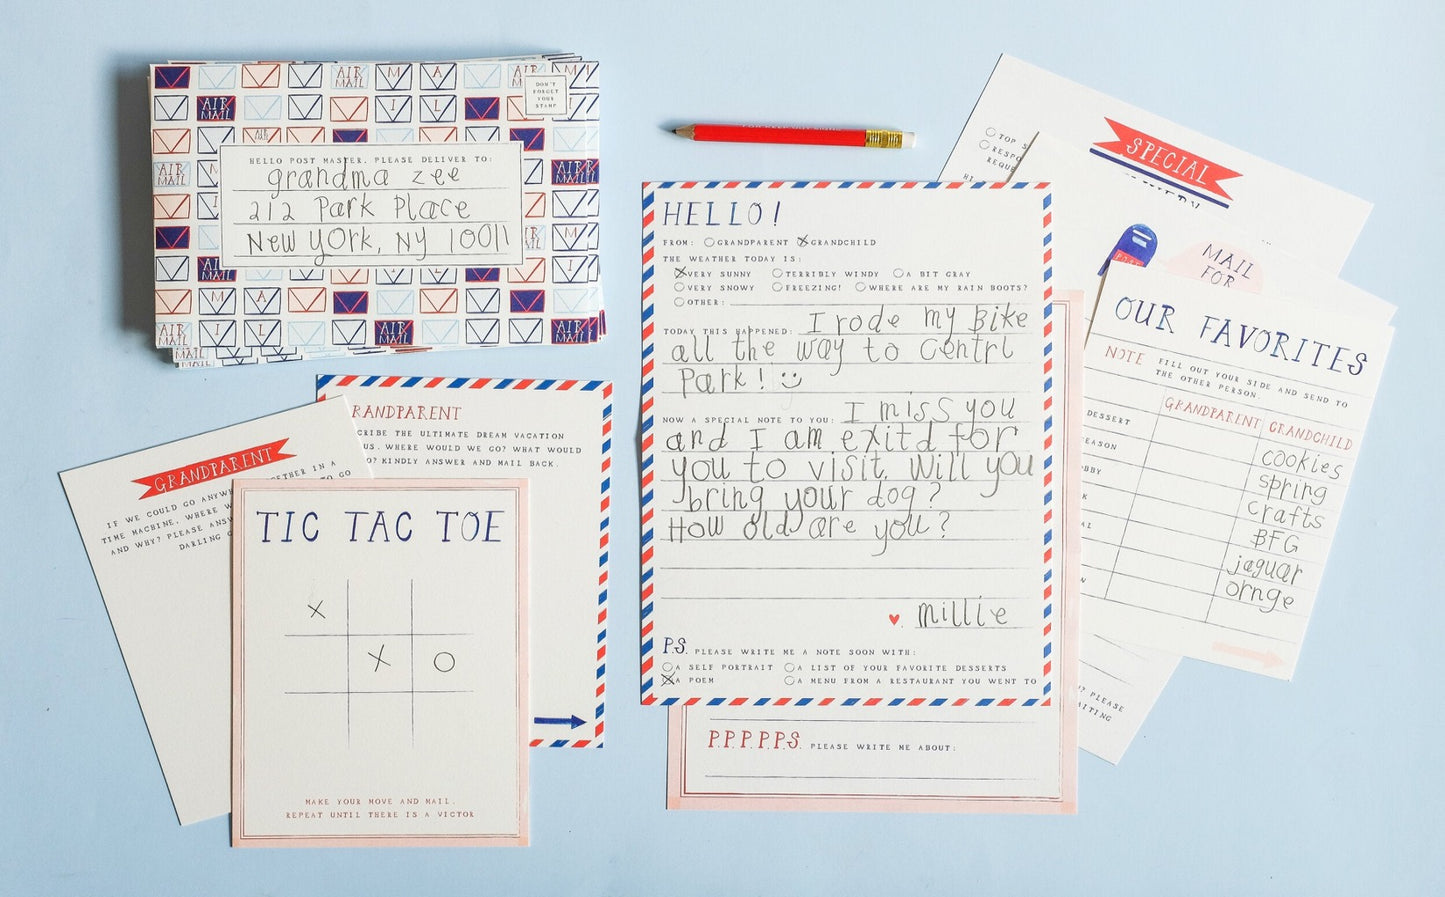 AIR MAIL
M A
I L
DON'T
FORGET
YOUR
STAMP
HELLO POST MASTER, PLEASE DELIVER TO:
grandma zee
212 Park Place
New York, NY 10011
HELLO!
FROM: GRANDPARENT GRANDCHILD
THE WEATHER TODAY IS:
VERY SUNNY TERRIBLY WINDY A BIT GRAY
VERY SNOWY FREEZING! WHERE ARE MY RAIN BOOTS?
OTHER:
TODAY THIS HAPPENED: I rode my Bike
all the way to centrl
Park! :)
NOW A SPECIAL NOTE TO YOU: I miss you
and I am exitd for
you to visit. Will you
bring your dog?
How old are you?
♥, millie
P.S. PLEASE WRITE ME A NOTE SOON WITH:
A SELF PORTRAIT A LIST OF YOUR FAVORITE DESSERTS
A POEM A MENU FROM A RESTAURANT YOU WENT TO
P.P.P.P.P.S. PLEASE WRITE ME ABOUT:
TOP S
RESPO
REQUE
HI
SPECIAL
MAIL
FOR
OUR FAVORITES
NOTE FILL OUT YOUR SIDE AND SEND TO
THE OTHER PERSON.
GRANDPARENT GRANDCHILD
DESSERT cookies
EASON spring
OBBY crafts
K BFG
AL jaguar
N ornge
? PLEASE
AITING
RANDPARENT
CRIBE THE ULTIMATE DREAM VACATION
US. WHERE WOULD WE GO? WHAT WOULD
O? KINDLY ANSWER AND MAIL BACK.
GRANDPARENT
IF WE COULD GO ANYWH ETHER IN A
TIME MACHINE, WHERE W TO GO
AND WHY? PLEASE ANSW
DARLING G
TIC TAC TOE
X
X O
MAKE YOUR MOVE AND MAIL.
REPEAT UNTIL THERE IS A VICTOR